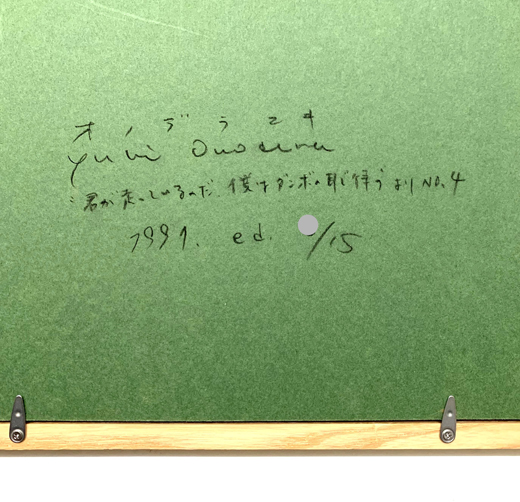 オノデラユキ
Yuki Onodera
"君が走っているのだ 僕はダンボの耳で待つ"より No.4
1991. ed. /15